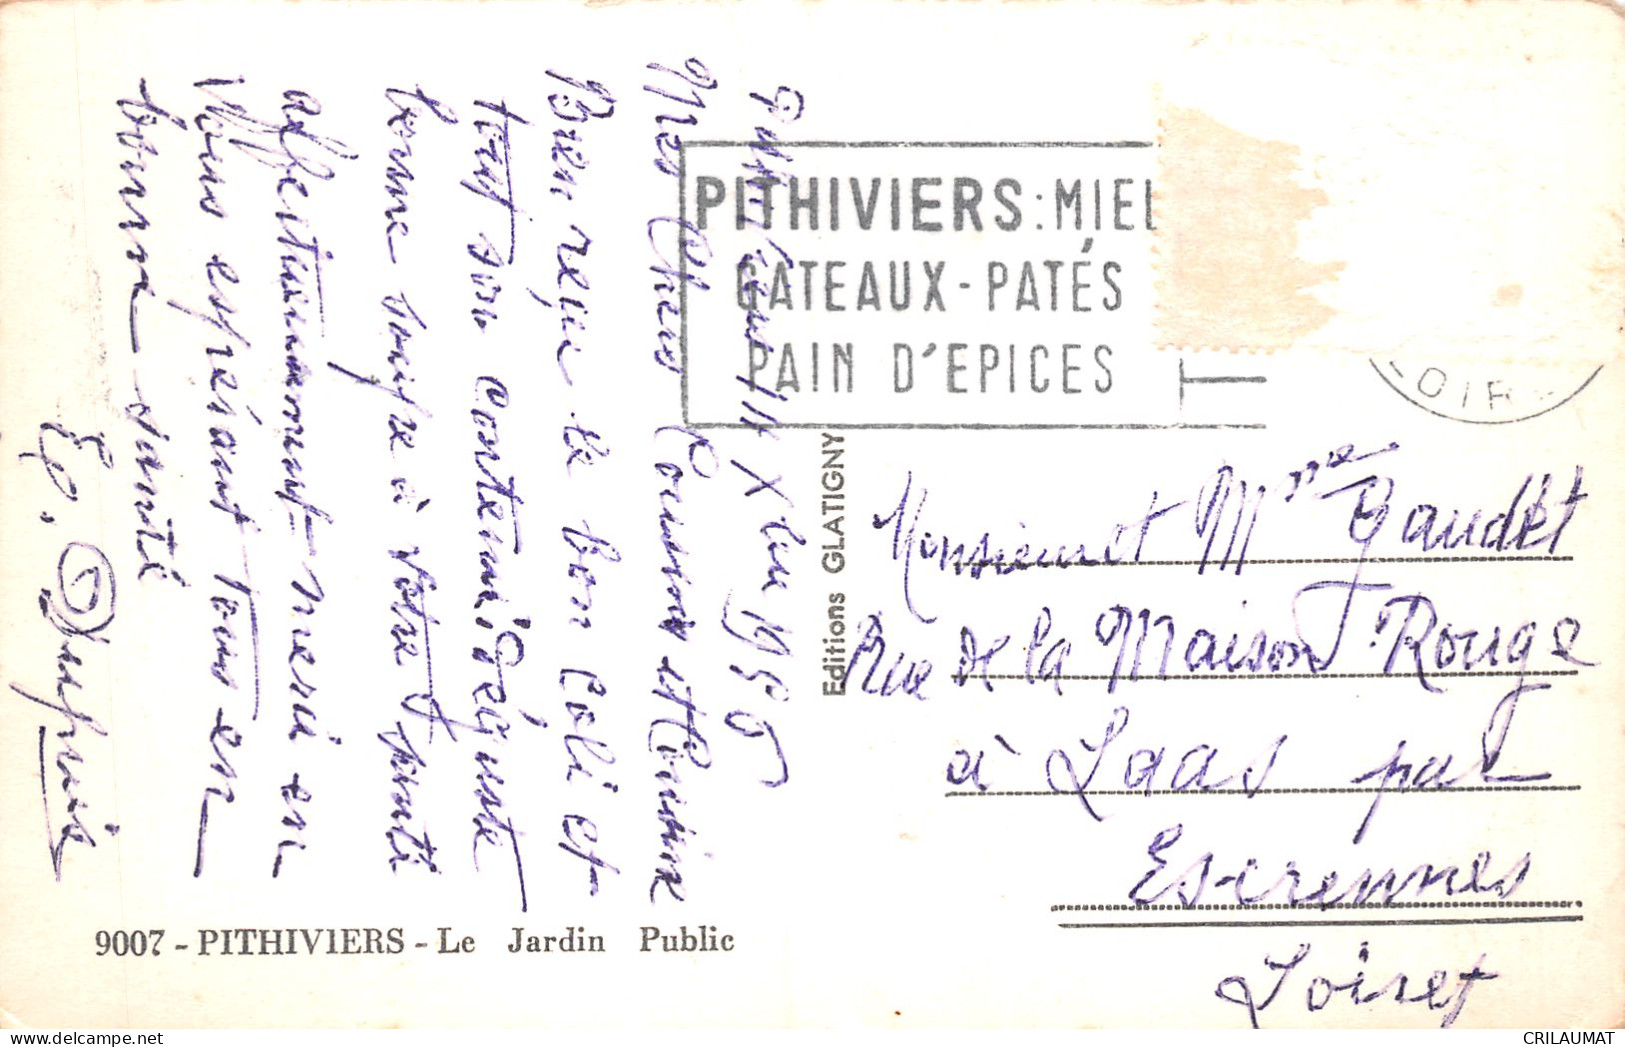 Pithiviers 14 X bre 1950
Mes Chers Cousin et Cousine
Bien reçu le bon Coli et
tout son contenu, Déguste
bonne soupe à votre santé
affectueusement merci en
Vous espérant tous en
bonne santé
E. Dupuis
PITHIVIERS : MIEL
GATEAUX - PATÉS
PAIN D'EPICES
LOIR
Editions GLATIGNY
Monsieur et Mme Gaudet
Rue de la Maison Rouge
à Laas par
Escrennes
Loiret
9007 - PITHIVIERS - Le Jardin Public
CRILAUMAT